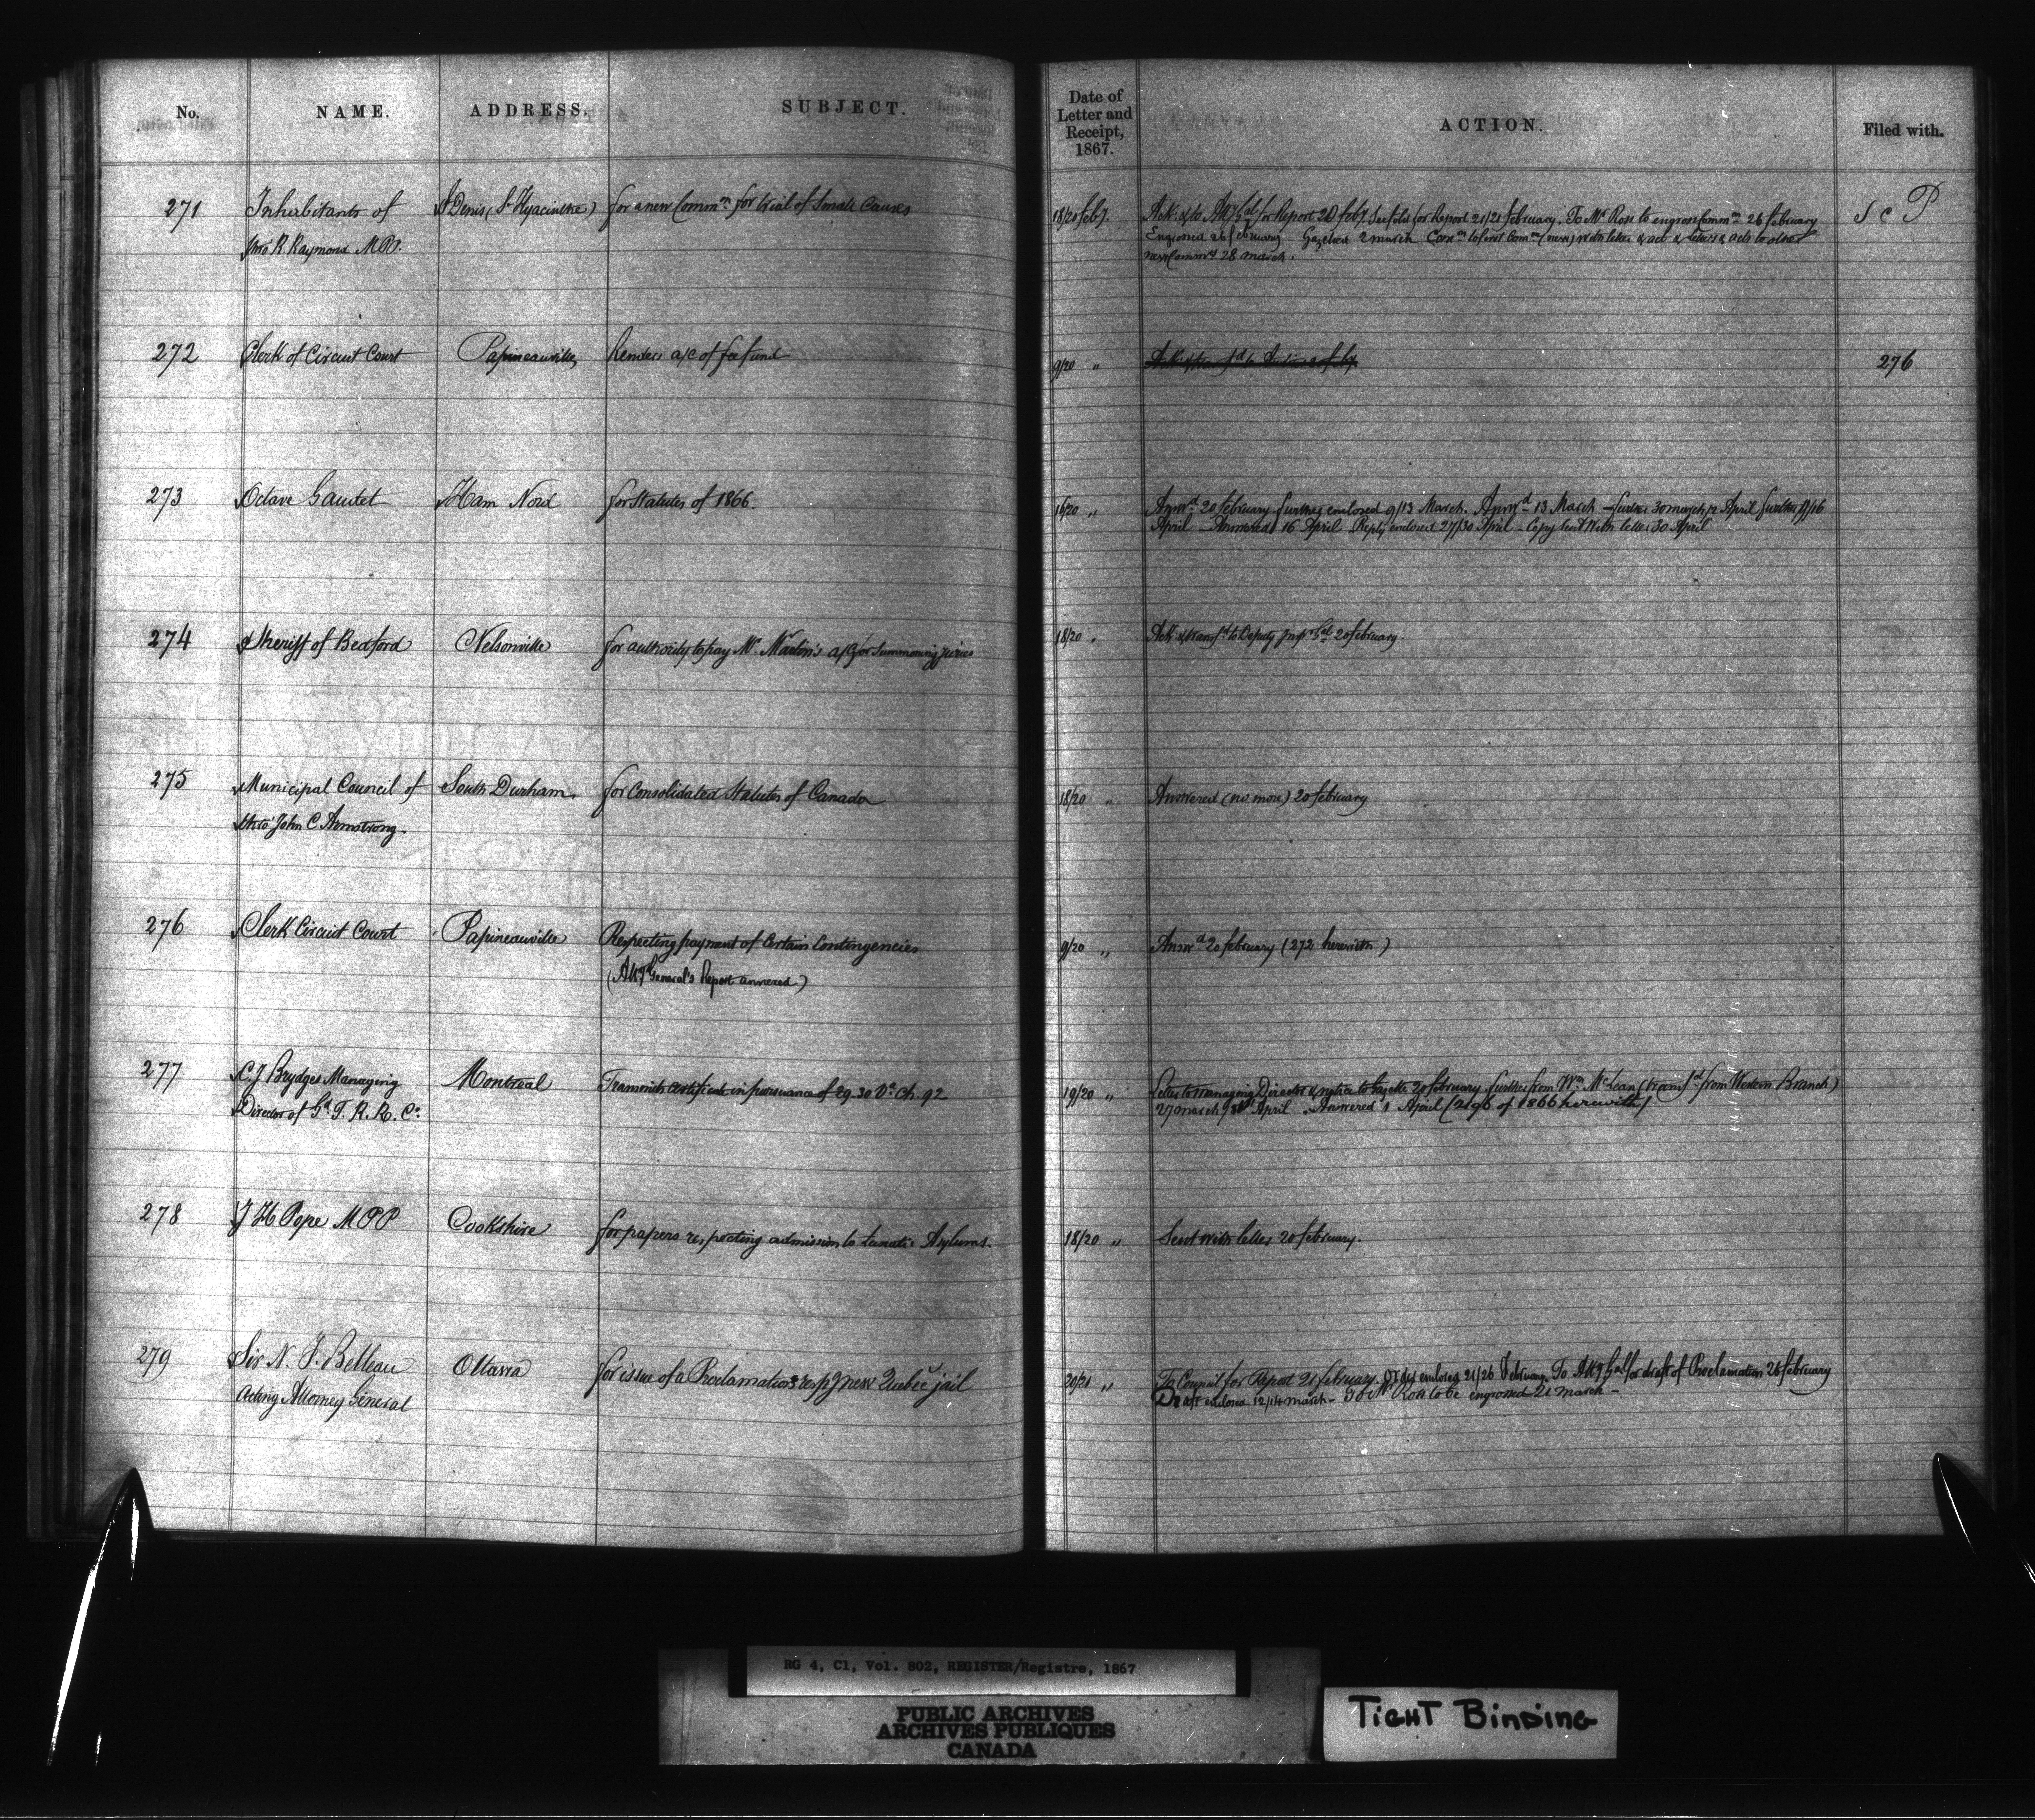 No. NAME. ADDRESS. SUBJECT. Date of Letter and Receipt, 1867. ACTION. Filed with.
271 Inhabitants of St Denis (St Hyacinthe) for a new Commn for trial of Small Causes 18/20 feby. Ack. & to Atty Gl for Report 20 feby. for Report 21/21 february. To Mr Rose to engross Commn 26 february S C P
thro' R. Raymond M.P.P. Engrossed 26 february Gazetted 2 march
new Commrs 28 march.
272 Clerk of Circuit Court Papineauville Renders a/c of fee fund 9/20 " 276
273 Octave Gaudet Ham Nord for Statutes of 1866. 16/20 " Answd 20 february further enclosed 9/13 March. Answd 13 March – further 30 march/2 April further 11/16
April – Answered 16 April Reply enclosed 27/30 April – Copy sent with letter 30 April
274 Sheriff of Bedford Nelsonville for authority to pay Mr Martin's a/c for summoning juries 18/20 " Ack & transfd to Deputy Inspr Gl 20 february.
275 Municipal Council of South Durham for Consolidated Statutes of Canada 18/20 " Answered (no more) 20 february
thro' John C Armstrong.
276 Clerk Circuit Court Papineauville Respecting payment of Certain Contingencies 9/20 " Answd 20 february (272 herewith)
(Atty General's Report annexed)
277 C. J Brydges Managing Montreal Transmits certificate in pursuance of 29.30 Vc. Ch. 92 19/20 " Letter to managing Director & notice to Gazette 20 february further from Wm McLean (transfd from Western Branch)
Director of Gd T. R. R. Co. 27 march/ April – Answered 1 April (2196 of 1866 herewith)
278 J H Pope M P P Cookshire for papers respecting admission to Lunatic Asylums. 18/20 " Sent with letter 20 february.
279 Sir N. F. Belleau Ottawa for issue of a Proclamation respg new Quebec jail 20/21 " To Council for Report 21 february. Order enclosed 21/26 February. To Atty Gall for draft of Proclamation 26 february
Acting Attorney General Draft enclosed 12/14 march – To Mr Rose to be engrossed 21 march –
RG 4, C1, Vol. 802, REGISTER/Registre, 1867
PUBLIC ARCHIVES
ARCHIVES PUBLIQUES
CANADA
TIGHT BINDING